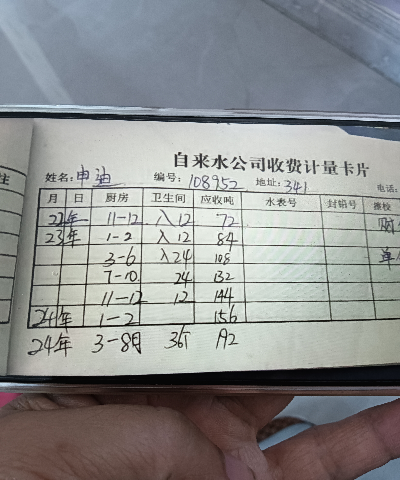 自来水公司收费计量卡片
姓名:申迪 编号:108952 地址:341 电话:
月 日 厨房 卫生间 应收吨 水表号 封铅号
22年 11-12 入12 72
23年 1-2 入12 84
3-6 入24 108
7-10 24 132
11-12 12 144
24年 1-2 156
24年 3-8月 36 192